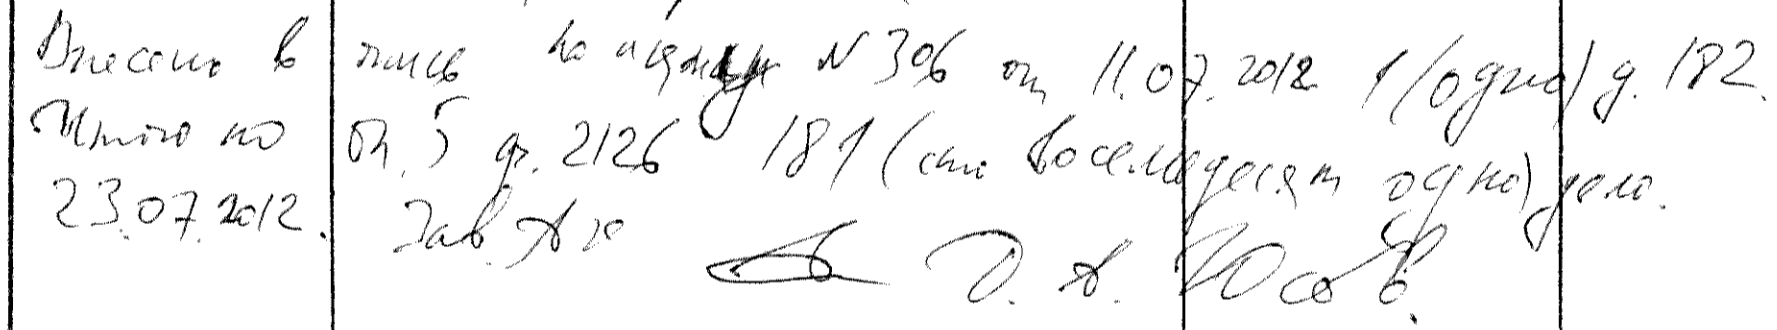 Внесено в опись по акту N 306 от 11.07.2012 1 (одно) д. 182.
Итого по оп. 5 ф. 2126 181 (сто восемьдесят одно) дело.
23.07.2012. Зав. А/х Д. А. Юсов.